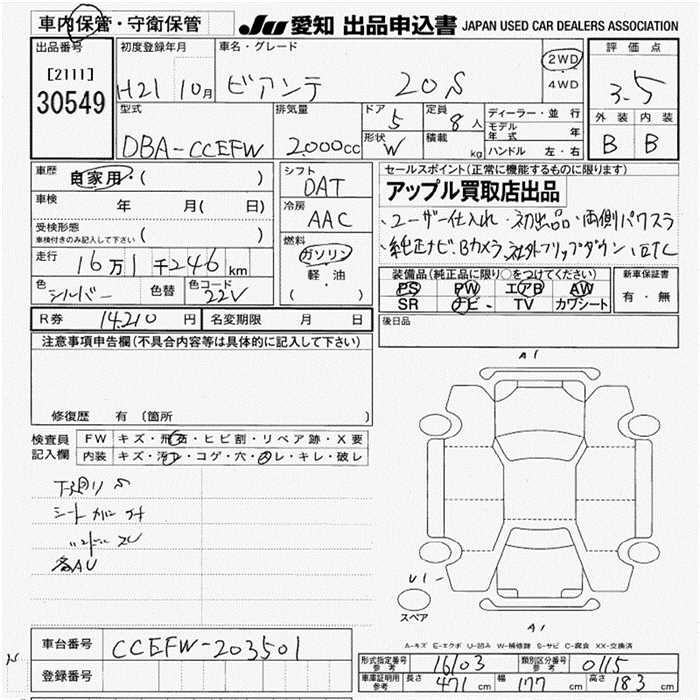 車内保管・守衛保管
JU 愛知 出品申込書 JAPAN USED CAR DEALERS ASSOCIATION
出品番号
[2111]
30549
初度登録年月
H21 10月
車名・グレード
ビアンテ 20S
2WD
4WD
評価点
3.5
外装 内装
B B
型式
DBA-CCEFW
排気量
2.000cc
ドア 5
形状 W
定員 8人
積載 kg
ディーラー・並行
モデル年式 年
ハンドル 左・右
車歴
自家用・( )
車検 年 月( 日)
受検形態
車検付きのみ記入して下さい ( )
走行 16万1千246km
色 シルバー 色替 色コード 22V
シフト
DAT
冷房
AAC
燃料
ガソリン
軽・油
( )
セールスポイント(正常に機能するものに限ります)
アップル買取店出品
、ユーザー仕入れ、初出品、両側パワスラ
、純正ナビ、Bカメラ、社外フリップダウン、ETC
装備品(純正品に限り○をつけてください)
PS PW エアB AW
SR ナビ TV カワシート
新車保証書
有・無
R券 14.210円 名変期限 月 日
後日品
注意事項申告欄(不具合内容等は具体的に記入して下さい)
修復歴 有 (箇所 )
検査員記入欄
FW キズ・飛石・ヒビ割・リペア跡・X要
内装 キズ・汚レ・コゲ・穴・スレ・キレ・破レ
下廻り S
シート
各AU
A1
U1
スペア
A1
A-キズ E-エクボ U-凹み W-補修跡 S-サビ C-腐食 XX-交換済
車台番号 CCEFW-203501
登録番号
形式指定番号 参考 16103
類別区分番号 参考 0115
車庫証明用 参考 長さ 471cm 幅 177cm 高さ 183cm